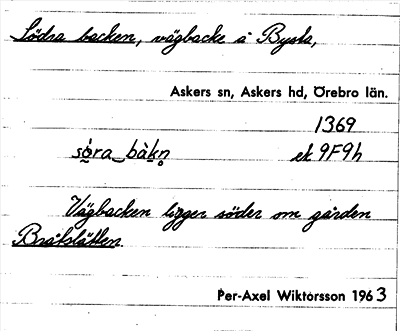 Södra backen, vägbacke å Bysta,
Askers sn, Askers hd, Örebro län.
1369
sö̀ra bàkn̥ ek 9F9h
Vägbacken ligger söder om gården
Bråtslätten.
Per-Axel Wiktorsson 1963